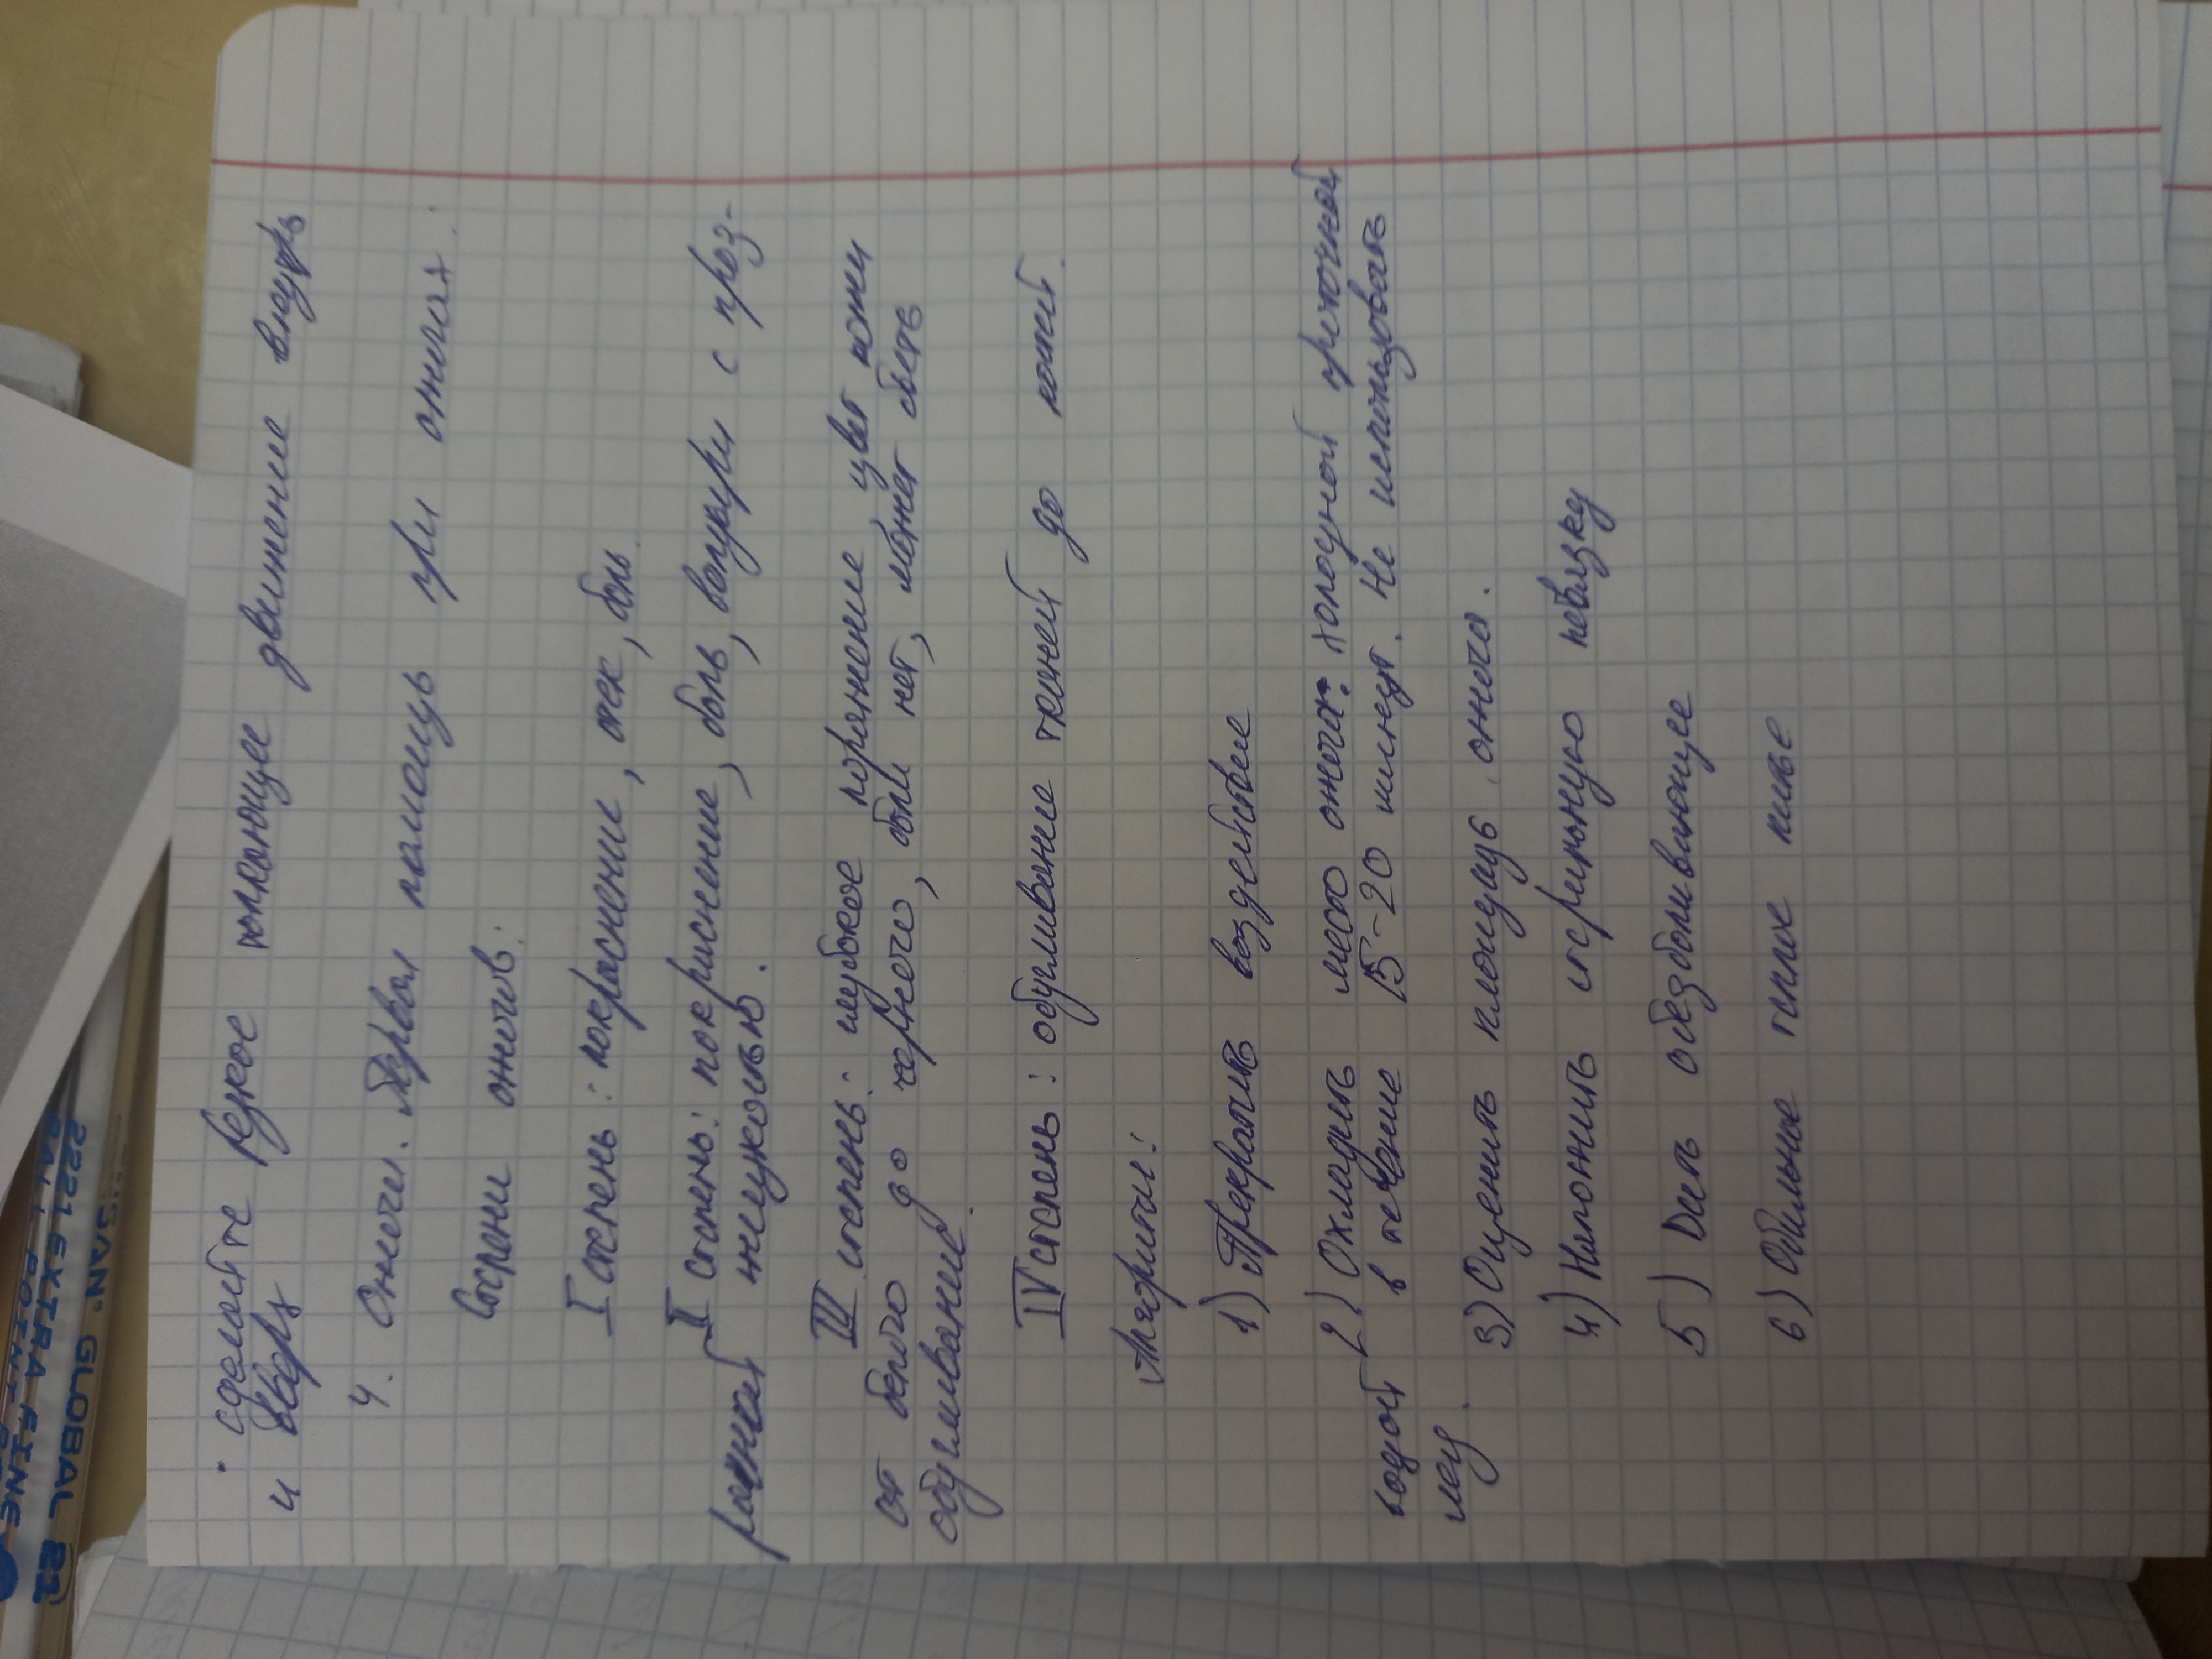 • сделайте резкое толкающее движение внутрь
и вверх
4. Ожоги. Первая помощь при ожогах.
Степени ожогов:
I степень: покраснение, отек, боль.
II степень: покраснение, боль, волдыри с проз-
рачной жидкостью.
III степень: глубокое поражение, цвет кожи
от белого до черного, боли нет, может быть
обугливание.
IV степень: обугливание тканей до костей.
Алгоритм:
1) Прекратить воздействие
2) Охладить место ожога: холодной проточной
водой в течение 15-20 минут. Не использовать
лед.
3) Оценить площадь ожога.
4) Наложить стерильную повязку
5) Дать обезболивающее
6) Обильное теплое питье
ISAN' GLOBAL 21
2221 EXTRA FINE
BALL POINT